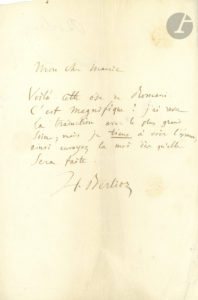 Mon cher Maurice
Voilà cette ode de Romani.
C'est magnifique ! j'ai revu
la traduction avec le plus grand
soin, mais je tiens à voir l'épreuve
ainsi envoyez la moi dès qu'elle
sera faite.
H. Berlioz